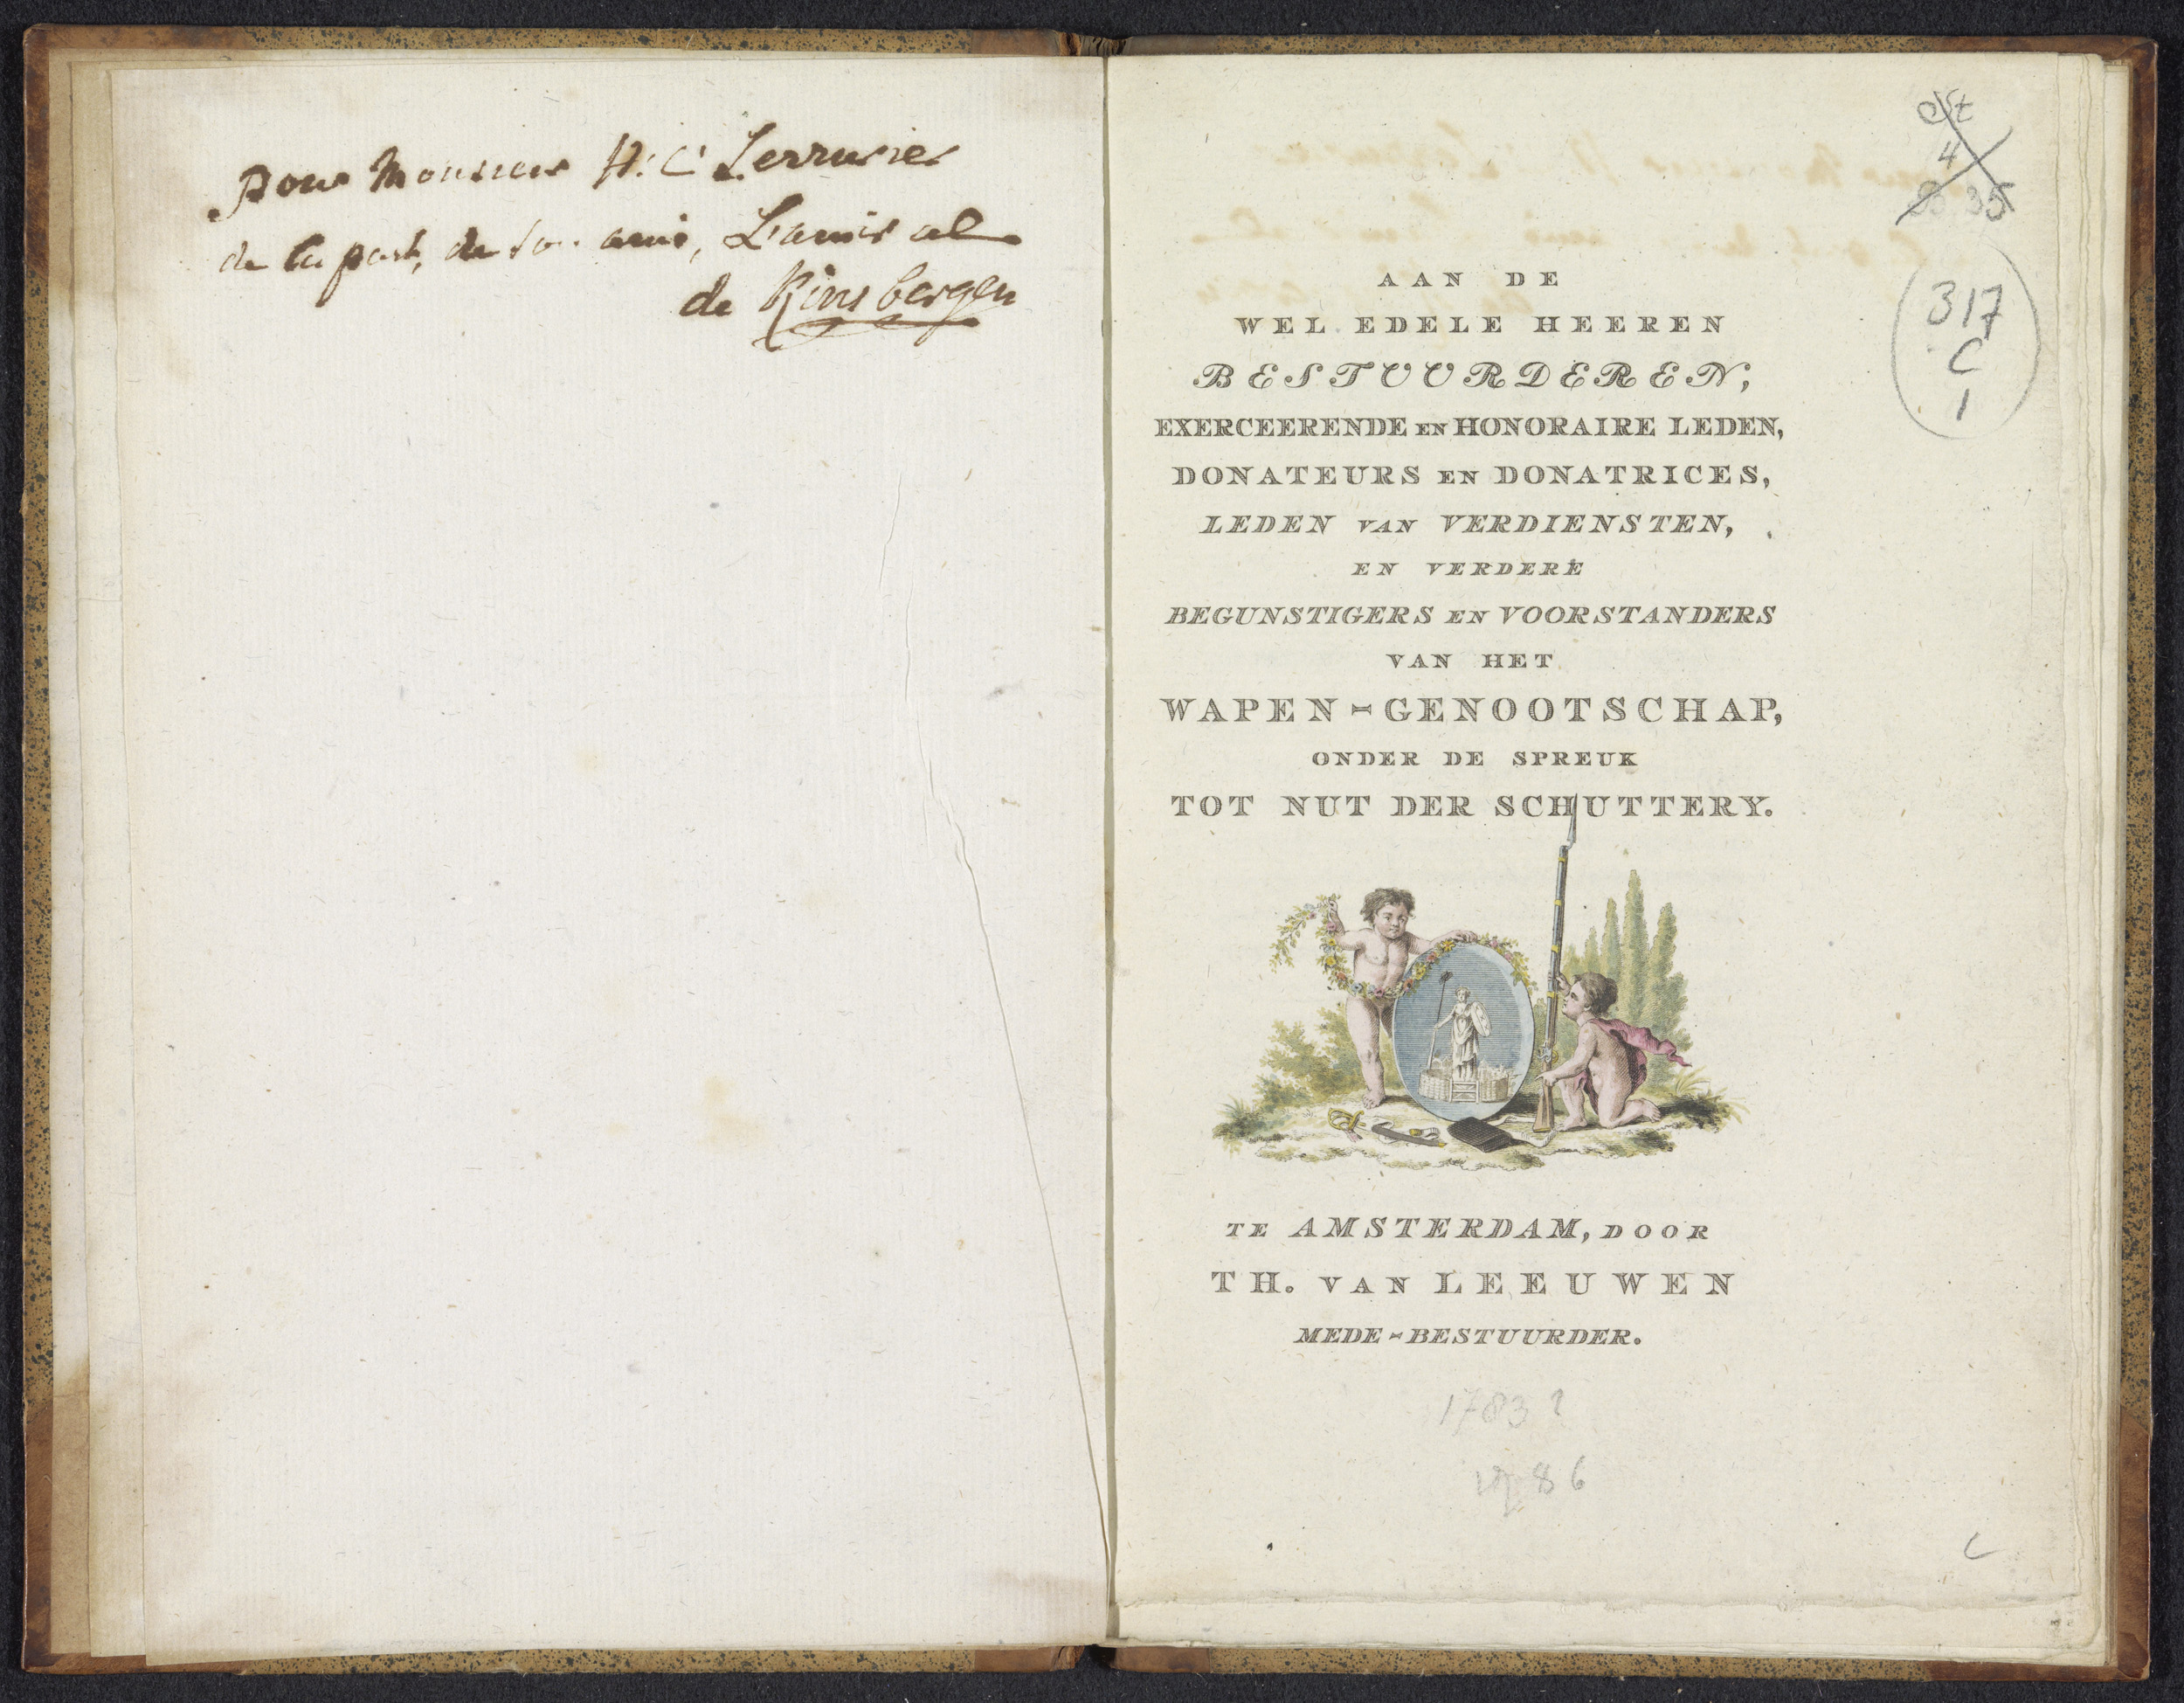 Pour Monsieur H: C: Lerrurier
de la part, de son ami, L'amiral
de Kinsbergen
AAN DE
WEL EDELE HEEREN
BESTUURDEREN,
EXERCEERENDE EN HONORAIRE LEDEN,
DONATEURS EN DONATRICES,
LEDEN VAN VERDIENSTEN,
EN VERDERE
BEGUNSTIGERS EN VOORSTANDERS
VAN HET
WAPEN-GENOOTSCHAP,
ONDER DE SPREUK
TOT NUT DER SCHUTTERY.
TE AMSTERDAM, DOOR
TH. VAN LEEUWEN
MEDE-BESTUURDER.
1783?
1786
4
35
317
C
1
C